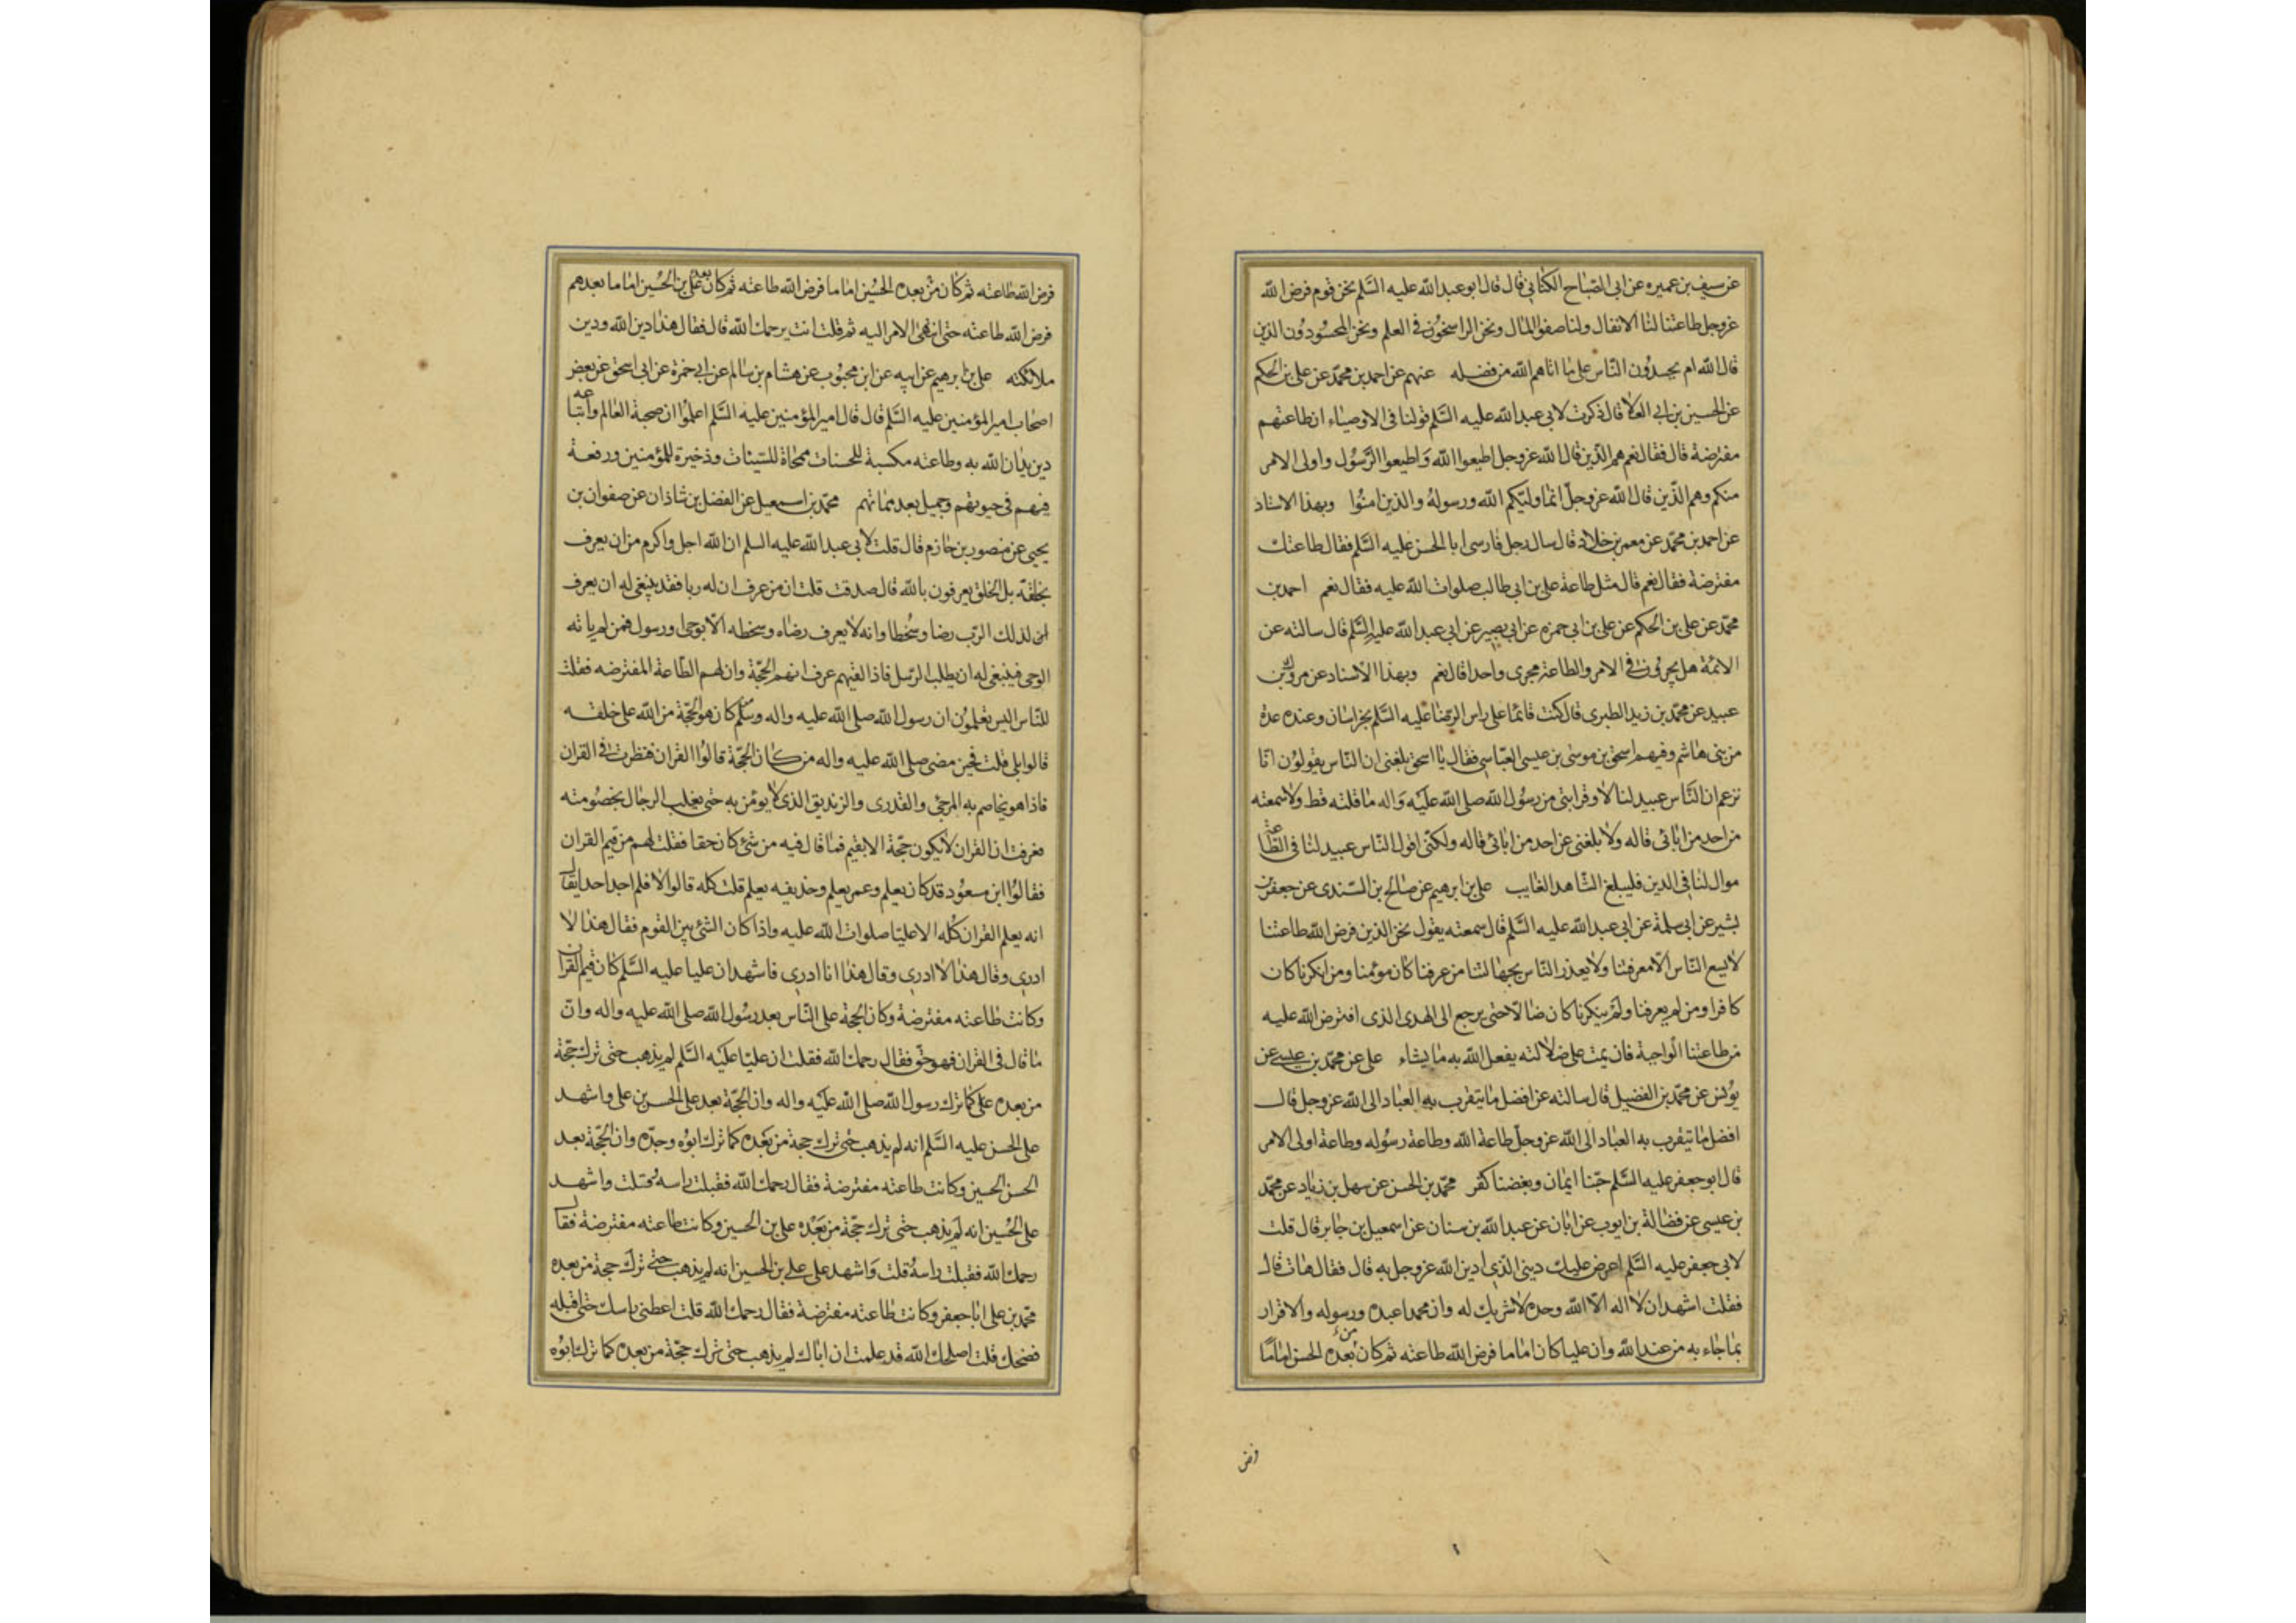 عن سيف بن عميره عن ابى الصباح الكنانى قال قال ابو عبد الله عليه السلم نحن قوم فرض الله
عزوجل طاعتنا لنا الانفال ولنا صفو المال ونحن الراسخون فى العلم ونحن المحسودون الذين
قال الله ام يحسدون الناس على ما اتاهم الله من فضله عنهم عن احمد بن محمد عن على بن الحكم
عن الحسين بن ابى العلا قال ذكرت لابى عبد الله عليه السلم قولنا فى الاوصياء ان طاعتهم
مفترضة قال فقال نعم هم الذين قال الله عزوجل اطيعوا الله واطيعوا الرسول واولى الامر
منكم وهم الذين قال الله عزوجل انما وليكم الله ورسوله والذين امنوا وبهذا الاسناد
عن احمد بن محمد عن معمر بن خلاد قال سال رجل فارسى ابا الحسن عليه السلم فقال طاعتك
مفترضة فقال نعم قال مثل طاعة على بن ابى طالب صلوات الله عليه فقال نعم احمد بن
محمد عن على بن الحكم عن على بن ابى حمزه عن ابى بصير عن ابى عبد الله عليه السلم قال سالته عن
الائمة هل يجرون فى الامر والطاعة مجرى واحد قال نعم وبهذا الاسناد عن مروك بن
عبيد عن محمد بن زيد الطبرى قال كنت قائما على راس الرضا عليه السلم بخراسان وعنده عدة
من بنى هاشم وفيهم اسحق بن موسى بن عيسى العباسى فقال يا اسحق بلغنى ان الناس يقولون انا
نزعم ان الناس عبيد لنا لا وقرابتى من رسول الله صلى الله عليه واله ما قلته قط ولا سمعته
من احد من ابائى قاله ولا بلغنى عن احد من ابائى قاله ولكنى اقول الناس عبيد لنا فى الطاعة
موال لنا فى الدين فليبلغ الشاهد الغايب على بن ابرهيم عن صالح بن السندى عن جعفر بن
بشير عن ابى سلمة عن ابى عبد الله عليه السلم قال سمعته يقول نحن الذين فرض الله طاعتنا
لا يسع الناس الا معرفتنا ولا يعذر الناس بجهالتنا من عرفنا كان مؤمنا ومن انكرنا كان
كافرا ومن لم يعرفنا ولم ينكرنا كان ضالا حتى يرجع الى الهدى الذى افترض الله عليه
من طاعتنا الواجبة فان يمت على ضلالته يفعل الله به ما يشاء على عن محمد بن عيسى عن
يونس عن محمد بن الفضيل قال سالته عن افضل ما يتقرب به العباد الى الله عزوجل قال
افضل ما يتقرب به العباد الى الله عزوجل طاعة الله وطاعة رسوله وطاعة اولى الامر
قال ابو جعفر عليه السلم حبنا ايمان وبغضنا كفر محمد بن الحسن عن سهل بن زياد عن محمد
بن عيسى عن فضالة بن ايوب عن ابان عن عبد الله بن سنان عن اسمعيل بن جابر قال قلت
لابى جعفر عليه السلم اعرض عليك دينى الذى ادين الله عزوجل به قال فقال هات قال
فقلت اشهد ان لا اله الا الله وحده لا شريك له وان محمدا عبده ورسوله والاقرار
بما جاء به من عند الله وان عليا كان اماما فرض الله طاعته ثم كان من بعده الحسن اماما
فرض
فرض الله طاعته ثم كان من بعده الحسين اماما فرض الله طاعته ثم كان بعده على بن الحسين اماما بعدهم
فرض الله طاعته حتى انتهى الامر اليه ثم قلت انت يرحمك الله قال فقال هذا دين الله ودين
ملائكته على بن ابرهيم عن ابيه عن ابن محبوب عن هشام بن سالم عن ابى حمزة عن ابى اسحق عن بعض
اصحاب امير المؤمنين عليه السلم قال قال امير المؤمنين عليه السلم اعلموا ان صحبة العالم واتباعه
دين يدان الله به وطاعته مكسبة للحسنات ممحاة للسيئات وذخيرة للمؤمنين ورفعة
فيهم فى حيوتهم وجميل بعد مماتهم محمد بن اسمعيل عن الفضل بن شاذان عن صفوان بن
يحيى عن منصور بن حازم قال قلت لابى عبد الله عليه السلم ان الله اجل واكرم من ان يعرف
بخلقه بل الخلق يعرفون بالله قال صدقت قلت ان من عرف ان له ربا فقد ينبغى له ان يعرف
ان لذلك الرب رضا وسخطا وانه لا يعرف رضاه وسخطه الا بوحى او رسول فمن لم ياته
الوحى فينبغى له ان يطلب الرسل فاذا لقيهم عرف انهم الحجة وان لهم الطاعة المفترضه فقلت
للناس اليس تعلمون ان رسول الله صلى الله عليه واله وسلم كان هو الحجة من الله على خلقه
قالوا بلى قلت فحين مضى صلى الله عليه واله من كان الحجة قالوا القران فنظرت فى القران
فاذا هو يخاصم به المرجئ والقدرى والزنديق الذى لا يومن به حتى يغلب الرجال بخصومته
فعرفت ان القران لا يكون حجة الا بقيم فما قال فيه من شئ كان حقا فقلت لهم من قيم القران
فقالوا ابن مسعود قد كان يعلم وعمر يعلم وحذيفه يعلم قلت كله قالوا لا فلم اجد احدا يقال
انه يعلم القران كله الا عليا صلوات الله عليه واذا كان الشئ بين القوم فقال هذا لا
ادرى وقال هذا لا ادرى وقال هذا انا ادرى فاشهد ان عليا عليه السلم كان قيم القران
وكانت طاعته مفترضة وكان الحجة على الناس بعد رسول الله صلى الله عليه واله وان
ما قال فى القران فهو حق فقال رحمك الله فقلت ان عليا عليه السلم لم يذهب حتى ترك حجة
من بعده على كما ترك رسول الله صلى الله عليه واله وان الحجة بعد على الحسن بن على واشهد
على الحسن عليه السلم انه لم يذهب حتى ترك حجة من بعده كما ترك ابوه وجده وان الحجة بعد
الحسن الحسين وكانت طاعته مفترضة فقال رحمك الله فقبلت راسه وقلت واشهد
على الحسين انه لم يذهب حتى ترك حجة من بعده على بن الحسين وكانت طاعته مفترضة فقال
رحمك الله فقبلت راسه قلت واشهد على على بن الحسين انه لم يذهب حتى ترك حجة من بعده
محمد بن على ابا جعفر وكانت طاعته مفترضة فقال رحمك الله قلت اعطنى راسك حتى اقبله
فضحك قلت اصلحك الله قد علمت ان اباك لم يذهب حتى ترك حجة من بعده كما ترك ابوه